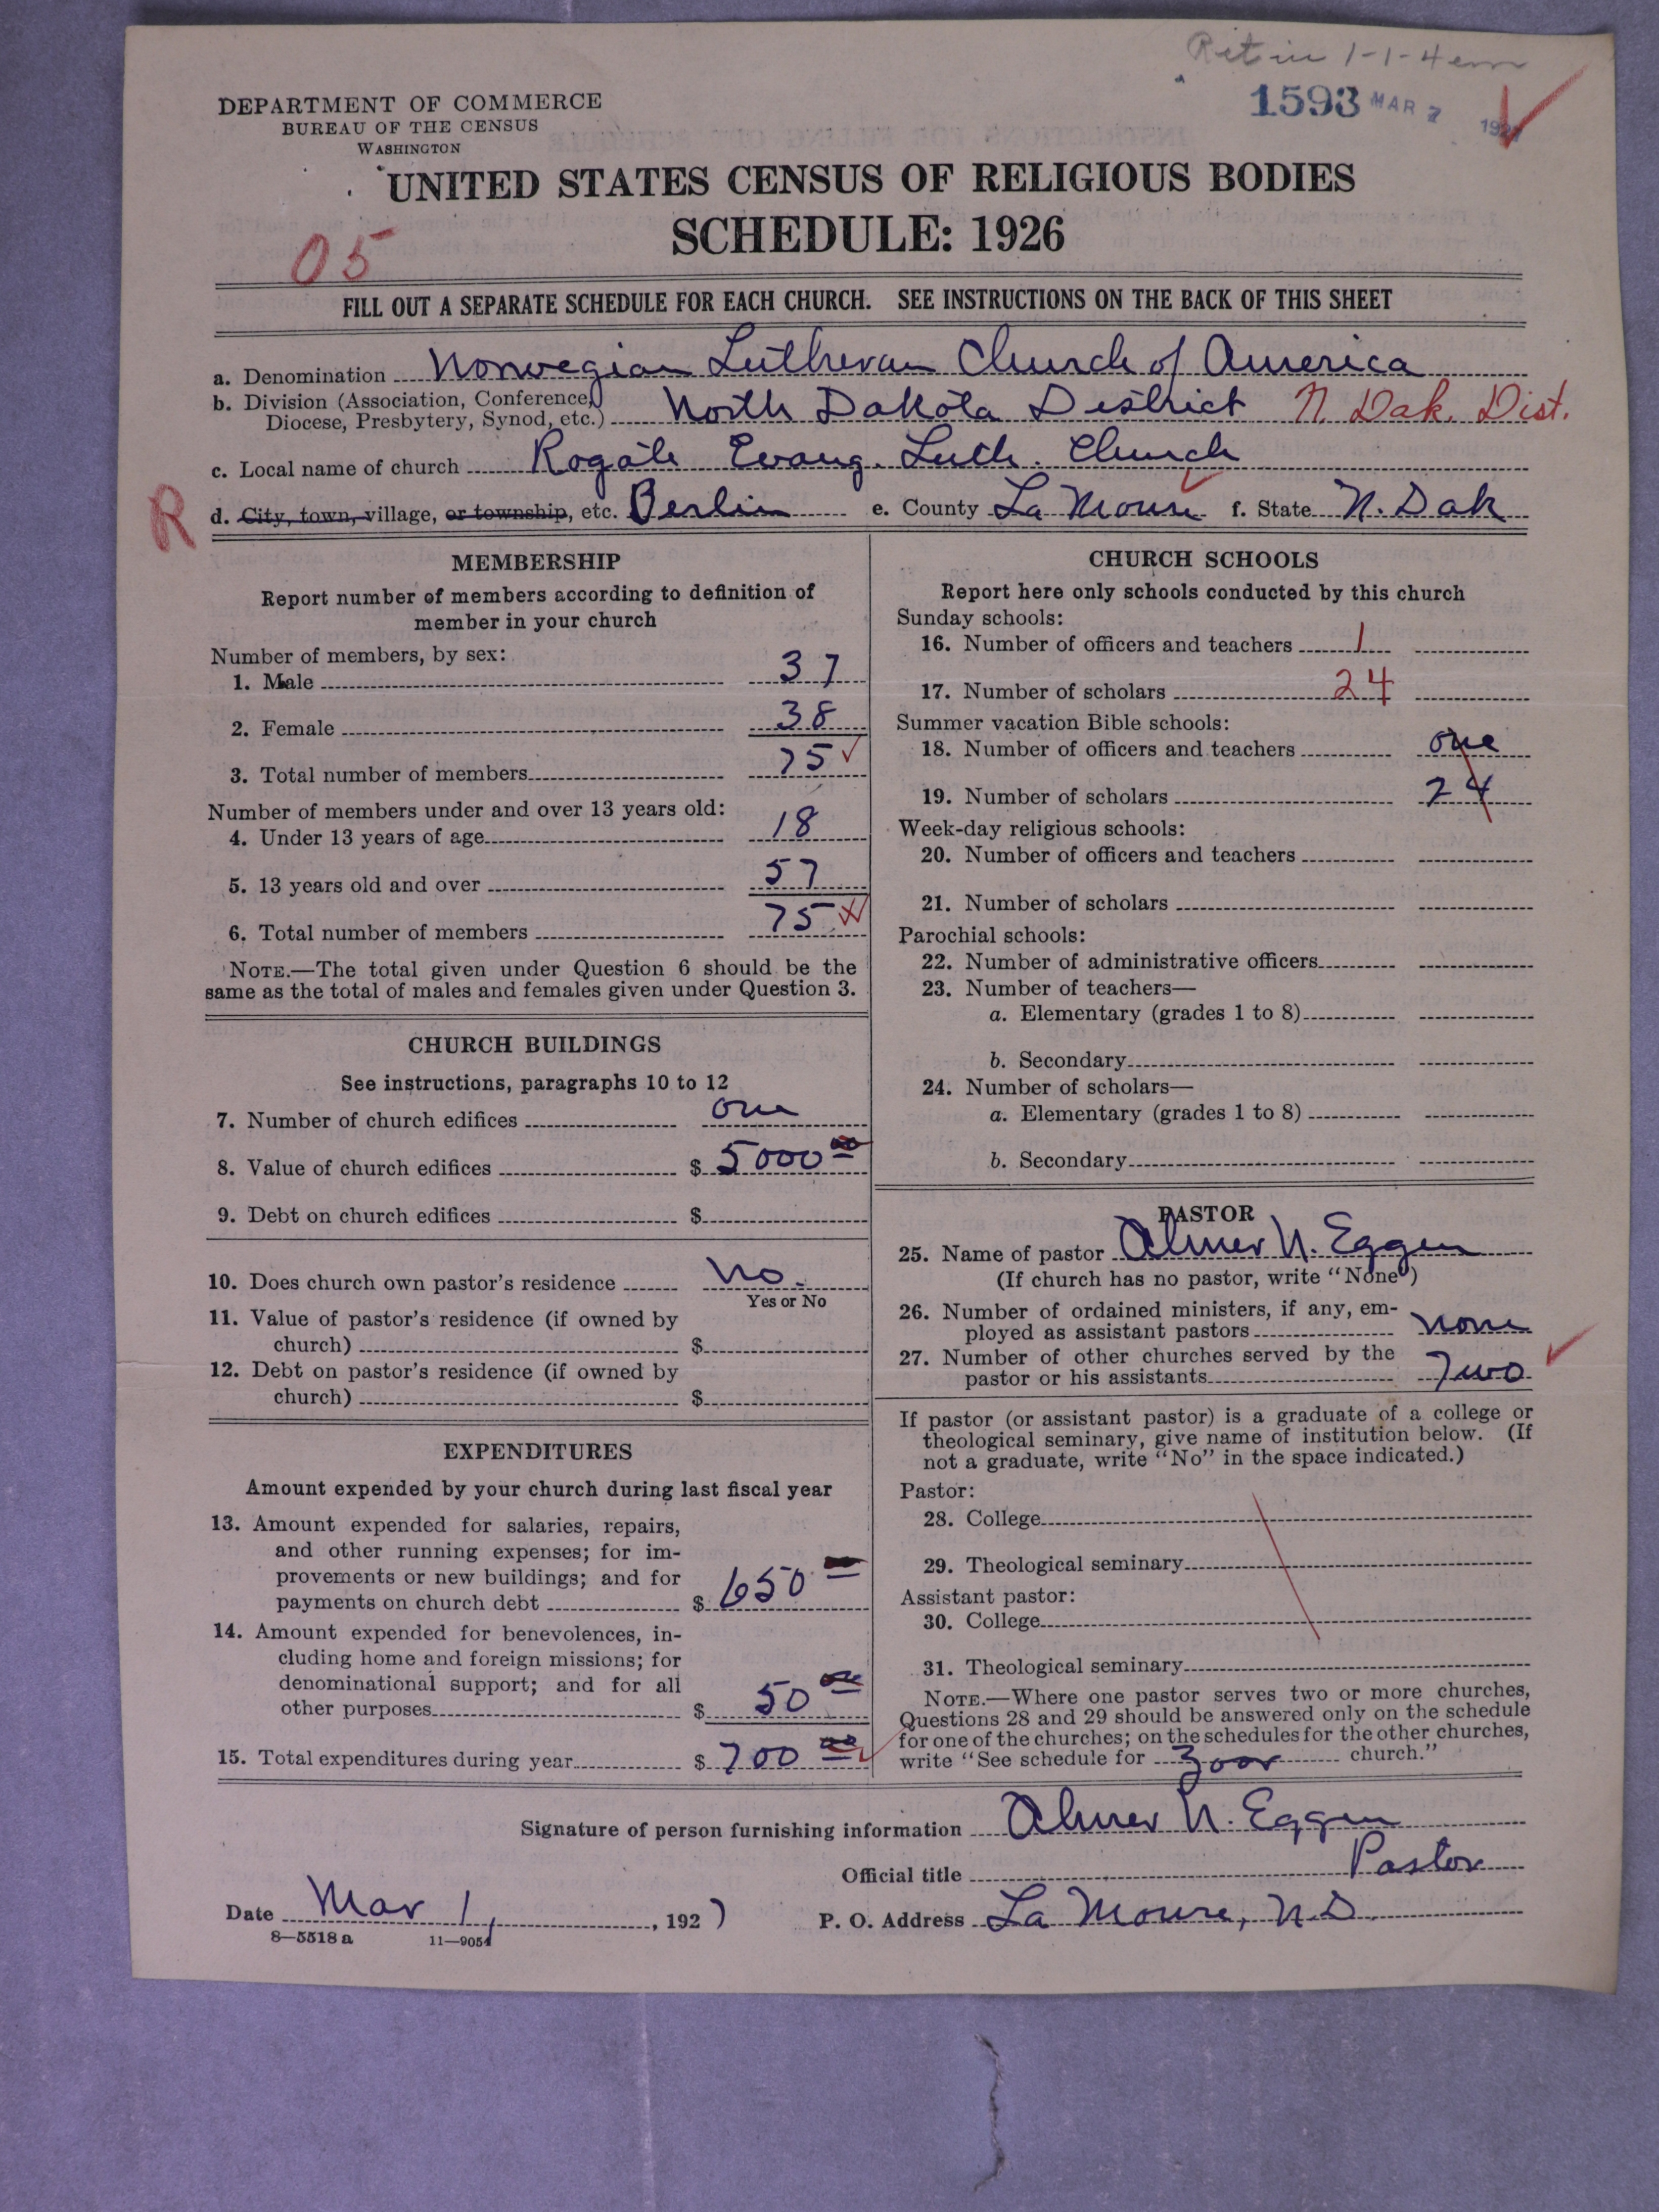 1593 MAR 7 1927
DEPARTMENT OF COMMERCE
BUREAU OF THE CENSUS
WASHINGTON
UNITED STATES CENSUS OF RELIGIOUS BODIES
SCHEDULE: 1926
05
FILL OUT A SEPARATE SCHEDULE FOR EACH CHURCH. SEE INSTRUCTIONS ON THE BACK OF THIS SHEET
a. Denomination Norwegian Lutheran Church of America
b. Division (Association, Conference,
Diocese, Presbytery, Synod, etc.) North Dakota District N. Dak. Dist.
c. Local name of church Rogate Evang. Luth. Church
R d. City, town, village, or township, etc. Berlin e. County La Moure f. State N. Dak
MEMBERSHIP
Report number of members according to definition of
member in your church
Number of members, by sex:
1. Male 37
2. Female 38
3. Total number of members 75
Number of members under and over 13 years old:
4. Under 13 years of age 18
5. 13 years old and over 57
6. Total number of members 75
NOTE.—The total given under Question 6 should be the
same as the total of males and females given under Question 3.
CHURCH BUILDINGS
See instructions, paragraphs 10 to 12
7. Number of church edifices one
8. Value of church edifices $ 5000 00
9. Debt on church edifices $
10. Does church own pastor's residence No.
Yes or No
11. Value of pastor's residence (if owned by
church) $
12. Debt on pastor's residence (if owned by
church) $
EXPENDITURES
Amount expended by your church during last fiscal year
13. Amount expended for salaries, repairs,
and other running expenses; for im-
provements or new buildings; and for
payments on church debt $ 650
14. Amount expended for benevolences, in-
cluding home and foreign missions; for
denominational support; and for all
other purposes $ 50 00
15. Total expenditures during year $ 700 00
CHURCH SCHOOLS
Report here only schools conducted by this church
Sunday schools:
16. Number of officers and teachers 1
17. Number of scholars 24
Summer vacation Bible schools:
18. Number of officers and teachers one
19. Number of scholars 24
Week-day religious schools:
20. Number of officers and teachers
21. Number of scholars
Parochial schools:
22. Number of administrative officers
23. Number of teachers—
a. Elementary (grades 1 to 8)
b. Secondary
24. Number of scholars—
a. Elementary (grades 1 to 8)
b. Secondary
PASTOR
25. Name of pastor Almer N. Eggen
(If church has no pastor, write "None")
26. Number of ordained ministers, if any, em-
ployed as assistant pastors none
27. Number of other churches served by the
pastor or his assistants Two
If pastor (or assistant pastor) is a graduate of a college or
theological seminary, give name of institution below. (If
not a graduate, write "No" in the space indicated.)
Pastor:
28. College
29. Theological seminary
Assistant pastor:
30. College
31. Theological seminary
NOTE.—Where one pastor serves two or more churches,
Questions 28 and 29 should be answered only on the schedule
for one of the churches; on the schedules for the other churches,
write "See schedule for Zoar church."
Signature of person furnishing information Almer N. Eggen
Official title Pastor
Date Mar 1, 1927 P. O. Address La Moure, N.D.
8—5518 a 11—9054